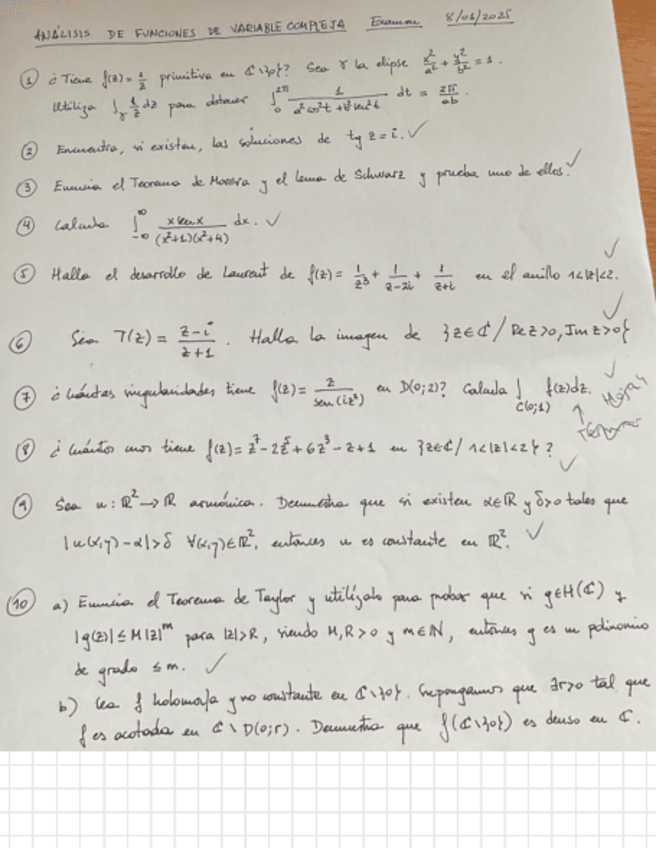 ANÁLISIS DE FUNCIONES DE VARIABLE COMPLEJA Examen 8/01/2025
① ¿Tiene f(z)=1/z primitiva en ℂ\{0}? Sea γ la elipse x²/a² + y²/b² = 1.
Utiliza ∫_γ 1/z dz para obtener ∫_0^{2π} 1/(a²cos²t + b²sen²t) dt = 2π/ab.
② Encuentra, si existen, las soluciones de tg z = i. ✓
③ Enuncia el Teorema de Morera y el Lema de Schwarz y prueba uno de ellos. ✓
④ Calcula ∫_{-∞}^{∞} x sen x/((x²+1)(x²+4)) dx. ✓
⑤ Halla el desarrollo de Laurent de f(z) = 1/z³ + 1/(z-2i) + 1/(z+i) en el anillo 1<|z|<2. ✓
⑥ Sea T(z) = (z-i)/(z+1). Halla la imagen de {z∈ℂ / Re z>0, Im z>0} ✓
⑦ ¿Cuántas singularidades tiene f(z) = z/sen(iz²) en D(0;2)? Calcula ∫_{C(0;1)} f(z)dz. ✓
↑
⑧ ¿Cuántos ceros tiene f(z)=z⁷-2z⁵+6z³-z+1 en {z∈ℂ / 1<|z|<2}? ✓
⑨ Sea u: ℝ²→ℝ armónica. Demuestra que si existen α∈ℝ y δ>0 tales que
|u(x,y)-α|>δ ∀(x,y)∈ℝ², entonces u es constante en ℝ². ✓
⑩ a) Enuncia el Teorema de Taylor y utilízalo para probar que si g∈H(ℂ) y
|g(z)| ≤ M|z|^m para |z|>R, siendo M,R>0 y m∈ℕ, entonces g es un polinomio
de grado ≤ m. ✓
b) Sea f holomorfa y no constante en ℂ\{0}. Supongamos que ∃r>0 tal que
f es acotada en ℂ\D(0;r). Demuestra que f(ℂ\{0}) es denso en ℂ.